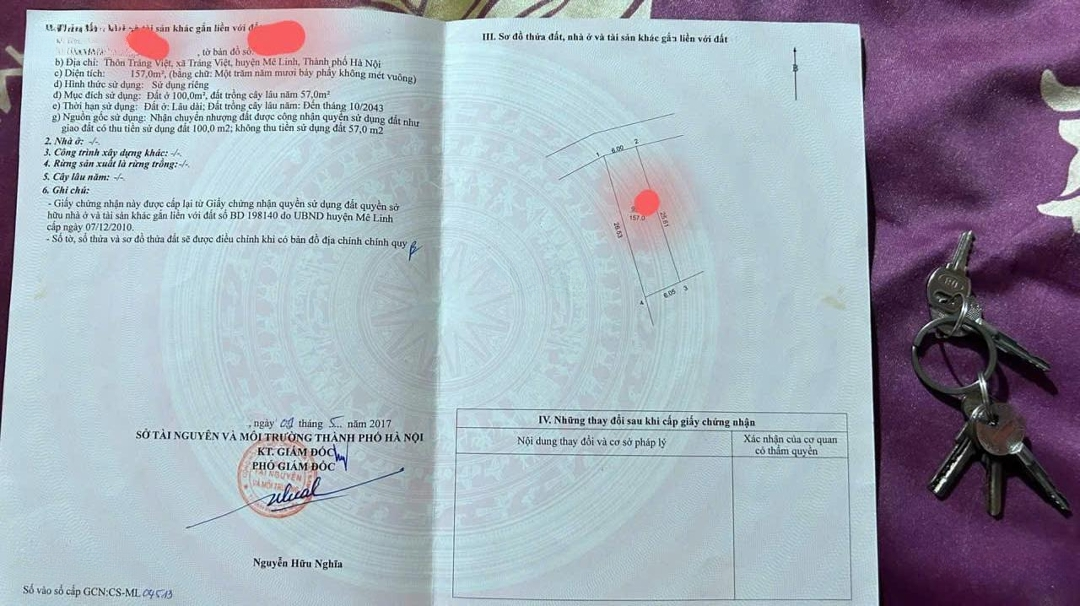 sản khác gắn liền với đ
, tờ bản đồ số:
b) Địa chỉ: Thôn Tráng Việt, xã Tráng Việt, huyện Mê Linh, Thành phố Hà Nội
c) Diện tích: 157,0m², (bằng chữ: Một trăm năm mươi bảy phẩy không mét vuông)
d) Hình thức sử dụng: Sử dụng riêng
đ) Mục đích sử dụng: Đất ở 100,0m², đất trồng cây lâu năm 57,0m²
e) Thời hạn sử dụng: Đất ở: Lâu dài; Đất trồng cây lâu năm: Đến tháng 10/2043
g) Nguồn gốc sử dụng: Nhận chuyển nhượng đất được công nhận quyền sử dụng đất như
giao đất có thu tiền sử dụng đất 100,0 m2; không thu tiền sử dụng đất 57,0 m2
2. Nhà ở: -/-
3. Công trình xây dựng khác: -/-
4. Rừng sản xuất là rừng trồng:-/-
5. Cây lâu năm: -/-
6. Ghi chú:
- Giấy chứng nhận này được cấp lại từ Giấy chứng nhận quyền sử dụng đất quyền sở
hữu nhà ở và tài sản khác gắn liền với đất số BD 198140 do UBND huyện Mê Linh
cấp ngày 07/12/2010.
- Số tờ, số thửa và sơ đồ thửa đất sẽ được điều chỉnh khi có bản đồ địa chính chính quy
, ngày 09 tháng 5 năm 2017
SỞ TÀI NGUYÊN VÀ MÔI TRƯỜNG THÀNH PHỐ HÀ NỘI
KT. GIÁM ĐỐC
PHÓ GIÁM ĐỐC
Nguyễn Hữu Nghĩa
Số vào sổ cấp GCN:CS-ML 04513
III. Sơ đồ thửa đất, nhà ở và tài sản khác gắn liền với đất
B
1
6.00
2
157.0
25.81
26.53
4
6.05
3
IV. Những thay đổi sau khi cấp giấy chứng nhận
Nội dung thay đổi và cơ sở pháp lý
Xác nhận của cơ quan
có thẩm quyền